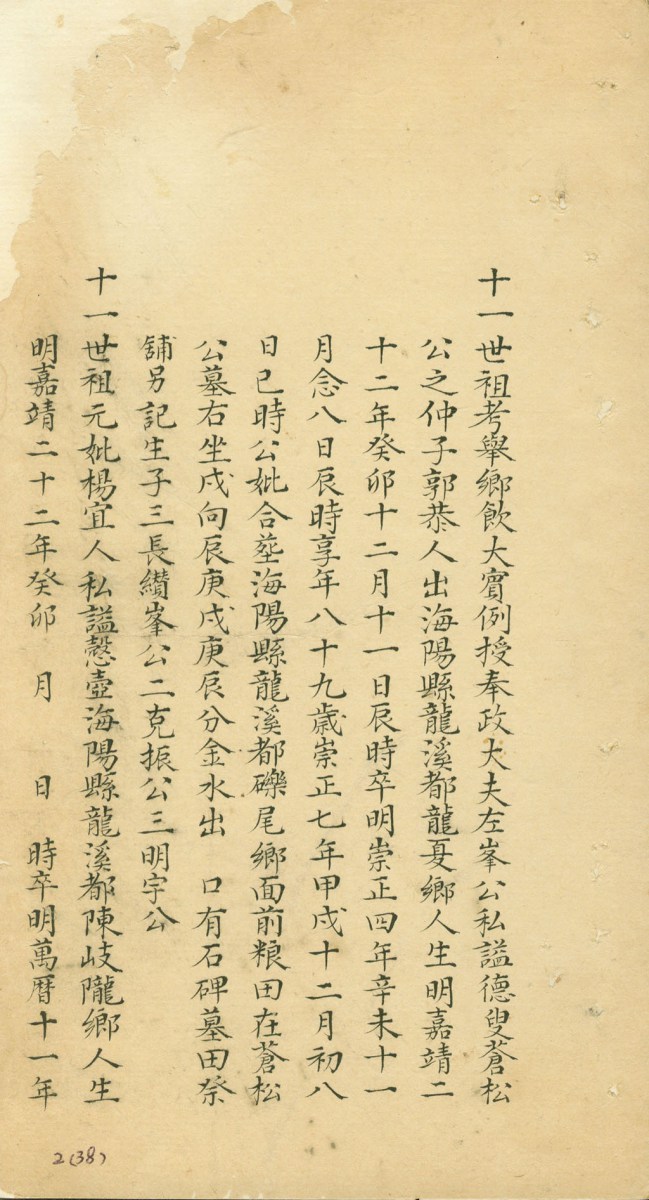 十一世祖考舉鄉飲大賓例授奉政大夫左峯公私謚德叟蒼松
公之仲子郭恭人出海陽縣龍溪都龍夏鄉人生明嘉靖二
十二年癸卯十二月十一日辰時卒明崇正四年辛未十一
月念八日辰時享年八十九歲崇正七年甲戌十二月初八
日巳時公妣合塟海陽縣龍溪都礫尾鄉面前粮田在蒼松
公墓右坐戌向辰庚戌庚辰分金水出 口有石碑墓田祭
舖另記生子三長纘峯公二克振公三明宇公
十一世祖元妣楊宜人私謚慤壼海陽縣龍溪都陳岐隴鄉人生
明嘉靖二十二年癸卯 月 日 時卒明萬曆十一年
2(38)